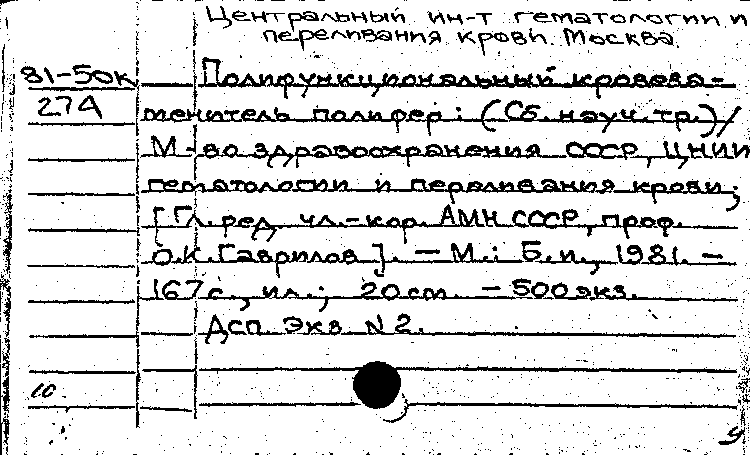 Центральный ин-т гематологии и
переливания крови. Москва.
81-50к Полифункциональный кровеза-
274 менитель полифер: (Сб. науч. тр.)/
М-во здравоохранения СССР, ЦНИИ
гематологии и переливания крови;
[Гл. ред. чл.-кор. АМН СССР, проф.
О.К. Гаврилов]. — М.: Б.и., 1981. —
167 с., ил.; 20 см. — 500 экз.
Дсп. Экз. N 2.
10
9